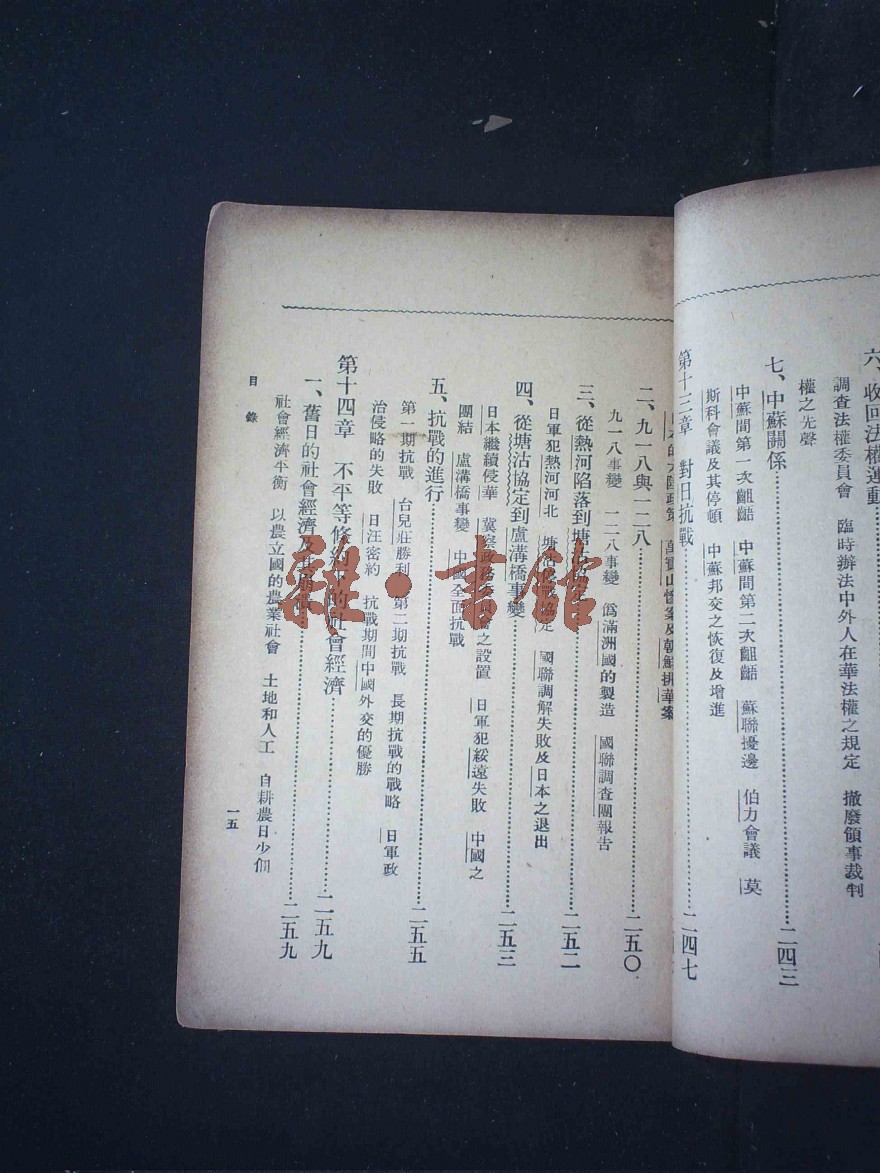 六、收回法權運動
調查法權委員會　臨時辦法中外人在華法權之規定　撤廢領事裁判
權之先聲
七、中蘇關係……二四三
中蘇間第一次齟齬　中蘇間第二次齟齬　蘇聯擾邊　伯力會議　莫
斯科會議及其停頓　中蘇邦交之恢復及增進
第十三章　對日抗戰……二四七
大陸政策　萬寶山慘案及朝鮮排華案
二、九一八與一二八……二五〇
九一八事變　一二八事變　僞滿洲國的製造　國聯調查團報告
三、從熱河陷落到塘沽協定……二五二
日軍犯熱河河北　塘沽停戰協定　國聯調解失敗及日本之退出
四、從塘沽協定到盧溝橋事變……二五三
日本繼續侵華　冀察政務委員會之設置　日軍犯綏遠失敗　中國之
團結　盧溝橋事變　中國全面抗戰
五、抗戰的進行……二五五
第一期抗戰　台兒莊勝利　第二期抗戰　長期抗戰的戰略　日軍政
治侵略的失敗　日汪密約　抗戰期間中國外交的優勝
第十四章　不平等條約下的社會經濟……二五九
一、舊日的社會經濟及……二五九
社會經濟平衡　以農立國的農業社會　土地和人工　自耕農日少佃
目錄
一五
雜·書館